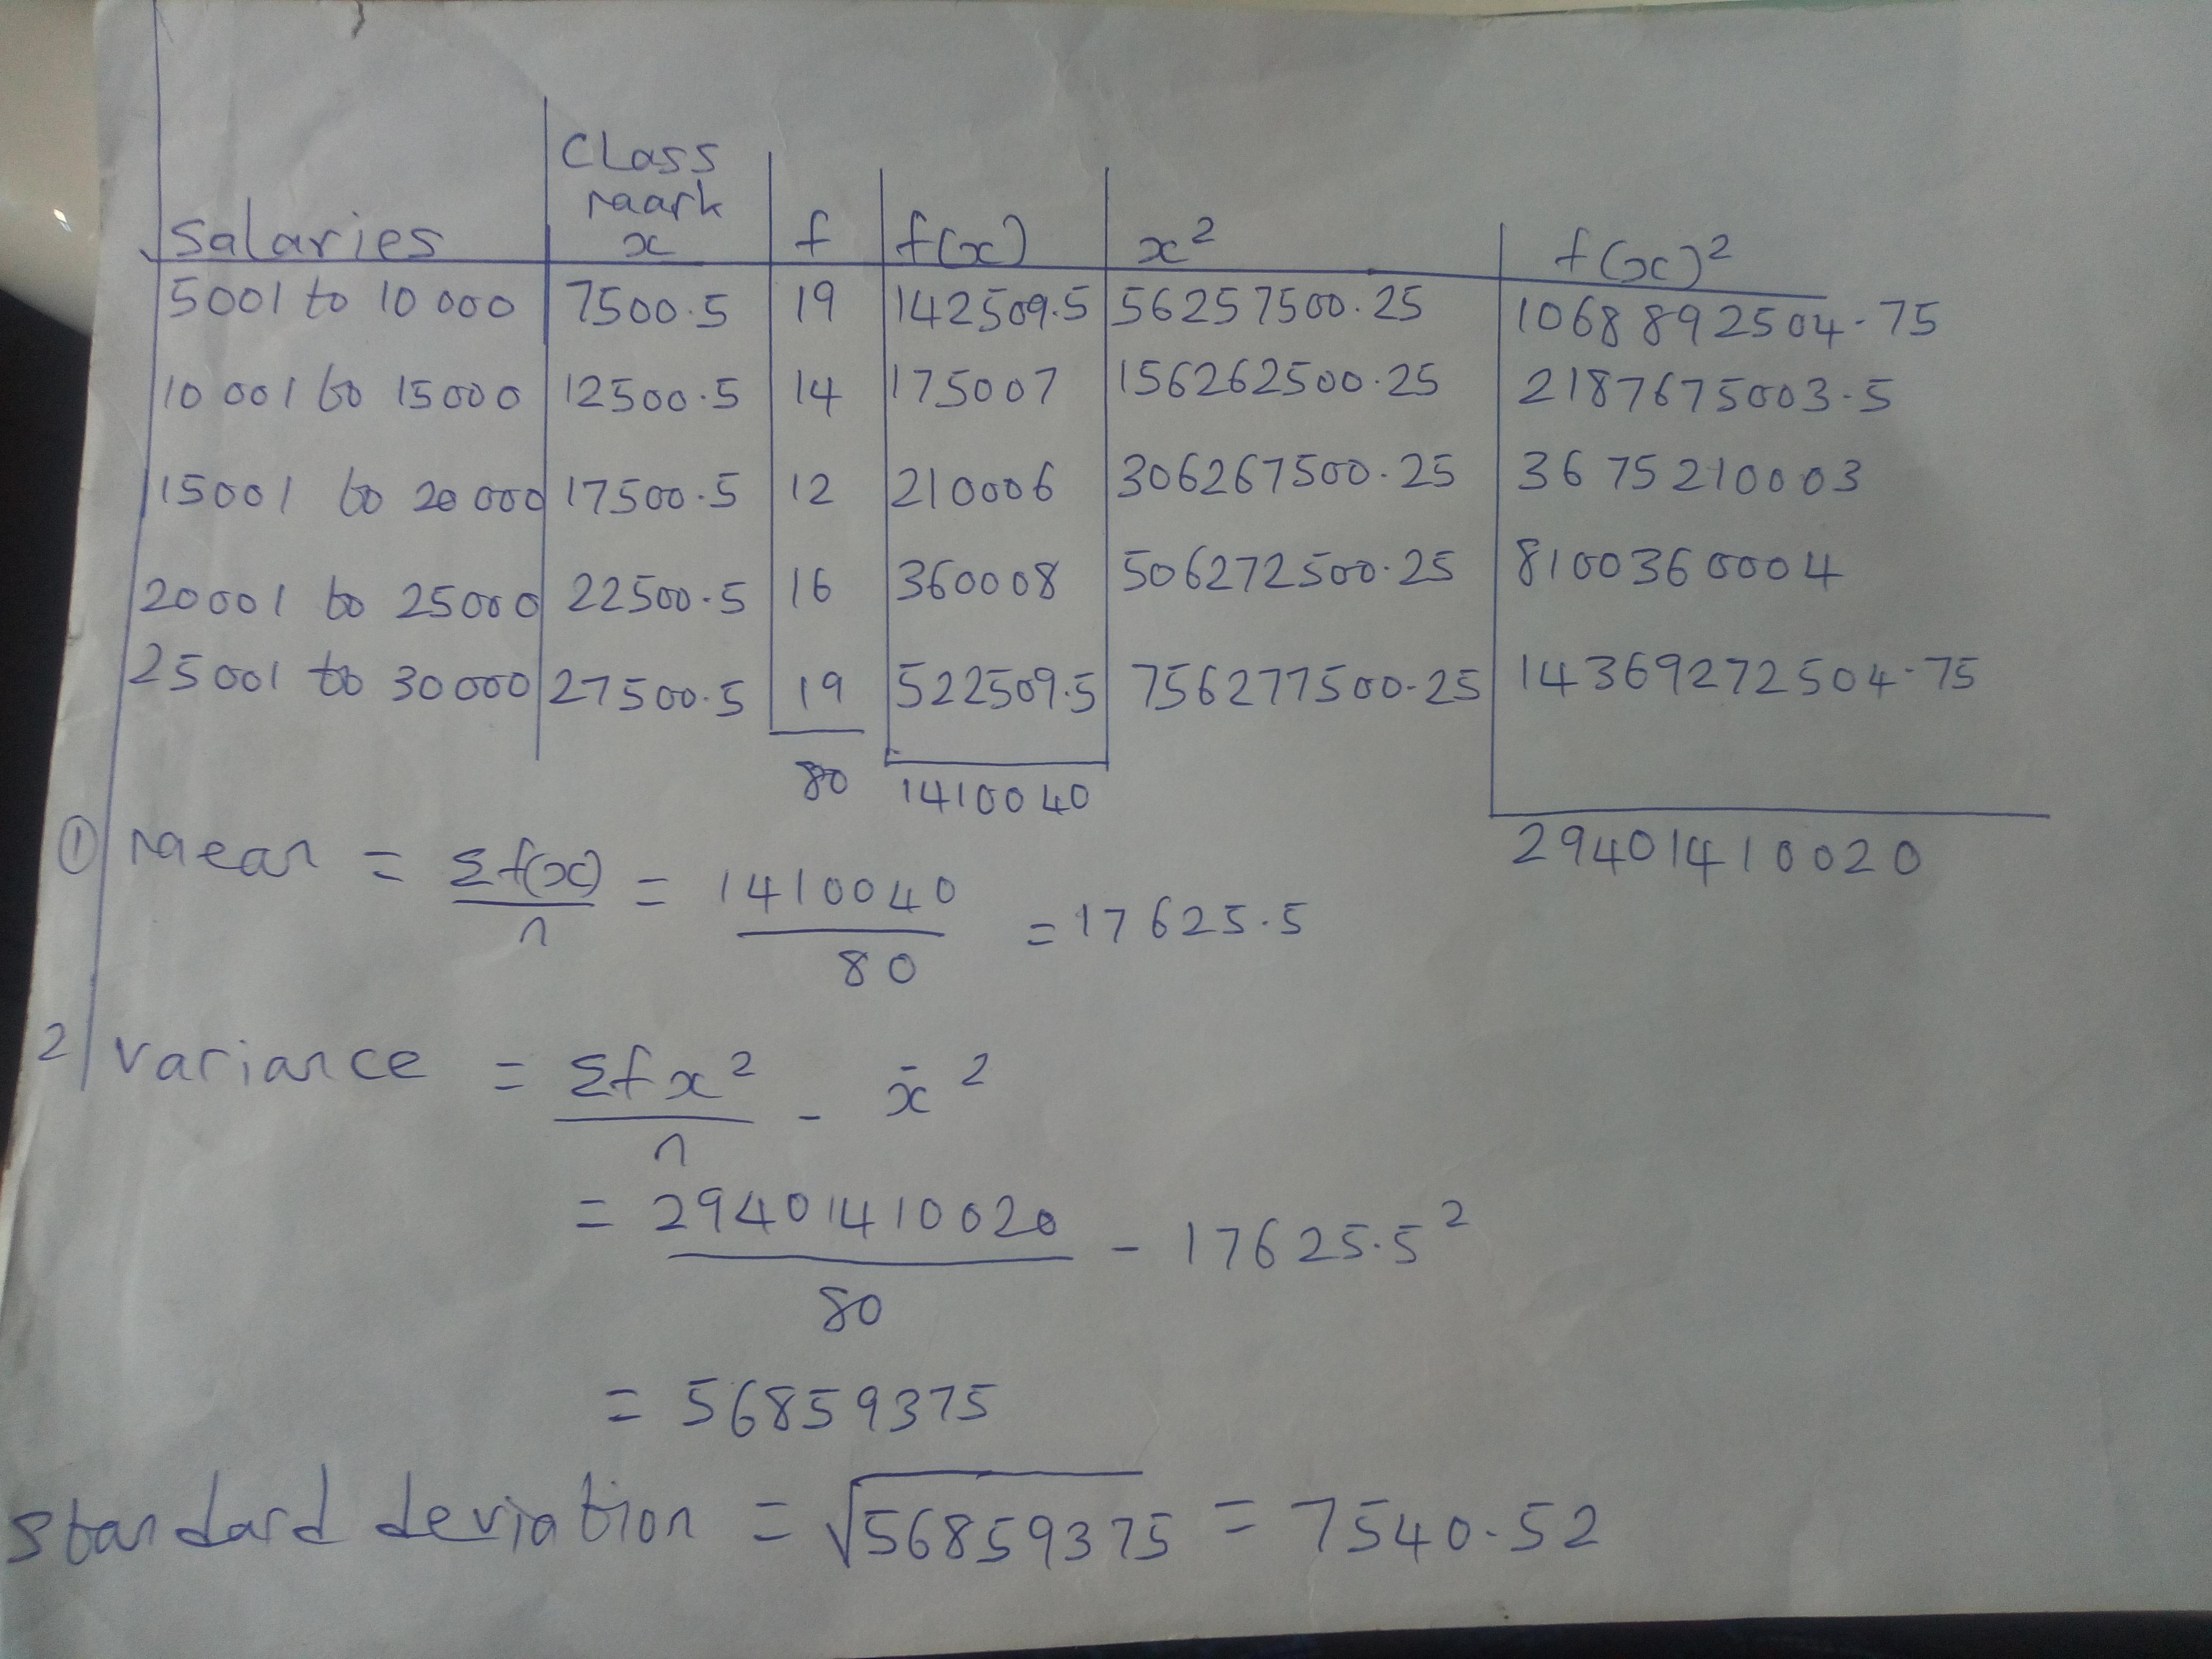 Class
maark
salaries x f f(x) x² f(x)²
5001 to 10 000 7500.5 19 142509.5 56257500.25 1068892504.75
10 001 to 15000 12500.5 14 175007 156262500.25 2187675003.5
15001 to 20 000 17500.5 12 210006 306267500.25 3675210003
20001 to 25000 22500.5 16 360008 506272500.25 8100360004
25001 to 30000 27500.5 19 522509.5 756277500.25 14369272504.75
80 1410040
29401410020
① mean = Σf(x)/n = 1410040/80 = 17625.5
2 variance = Σfx²/n - x̄²
= 29401410020/80 - 17625.5²
= 56859375
standard deviation = √56859375 = 7540.52